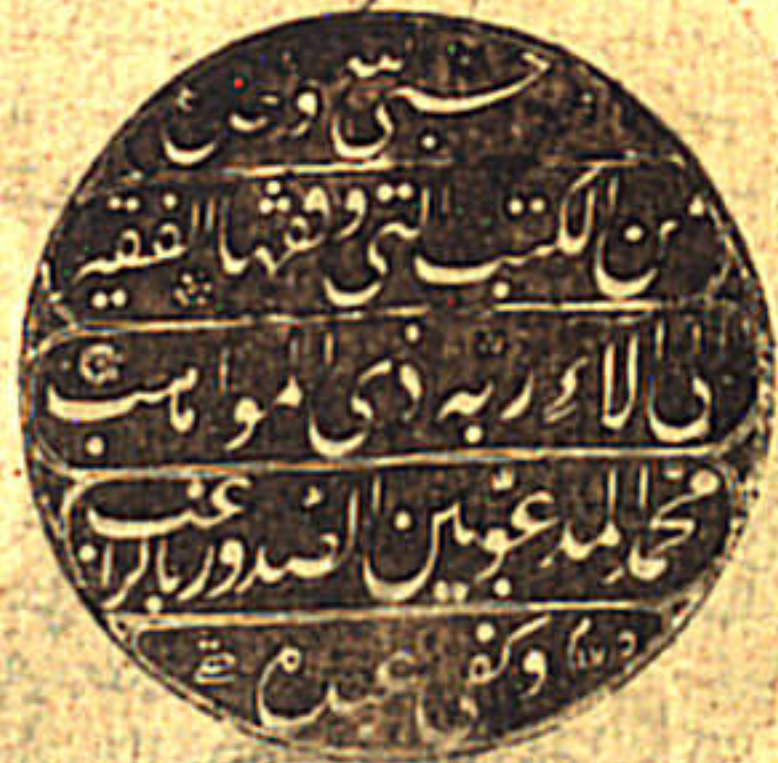 حسبي و
من الكتب التي وقفها الفقير
الى آلاء ربه ذي المواهب
محمد المدعو بين الصدور بالراغب
وكفى عبده